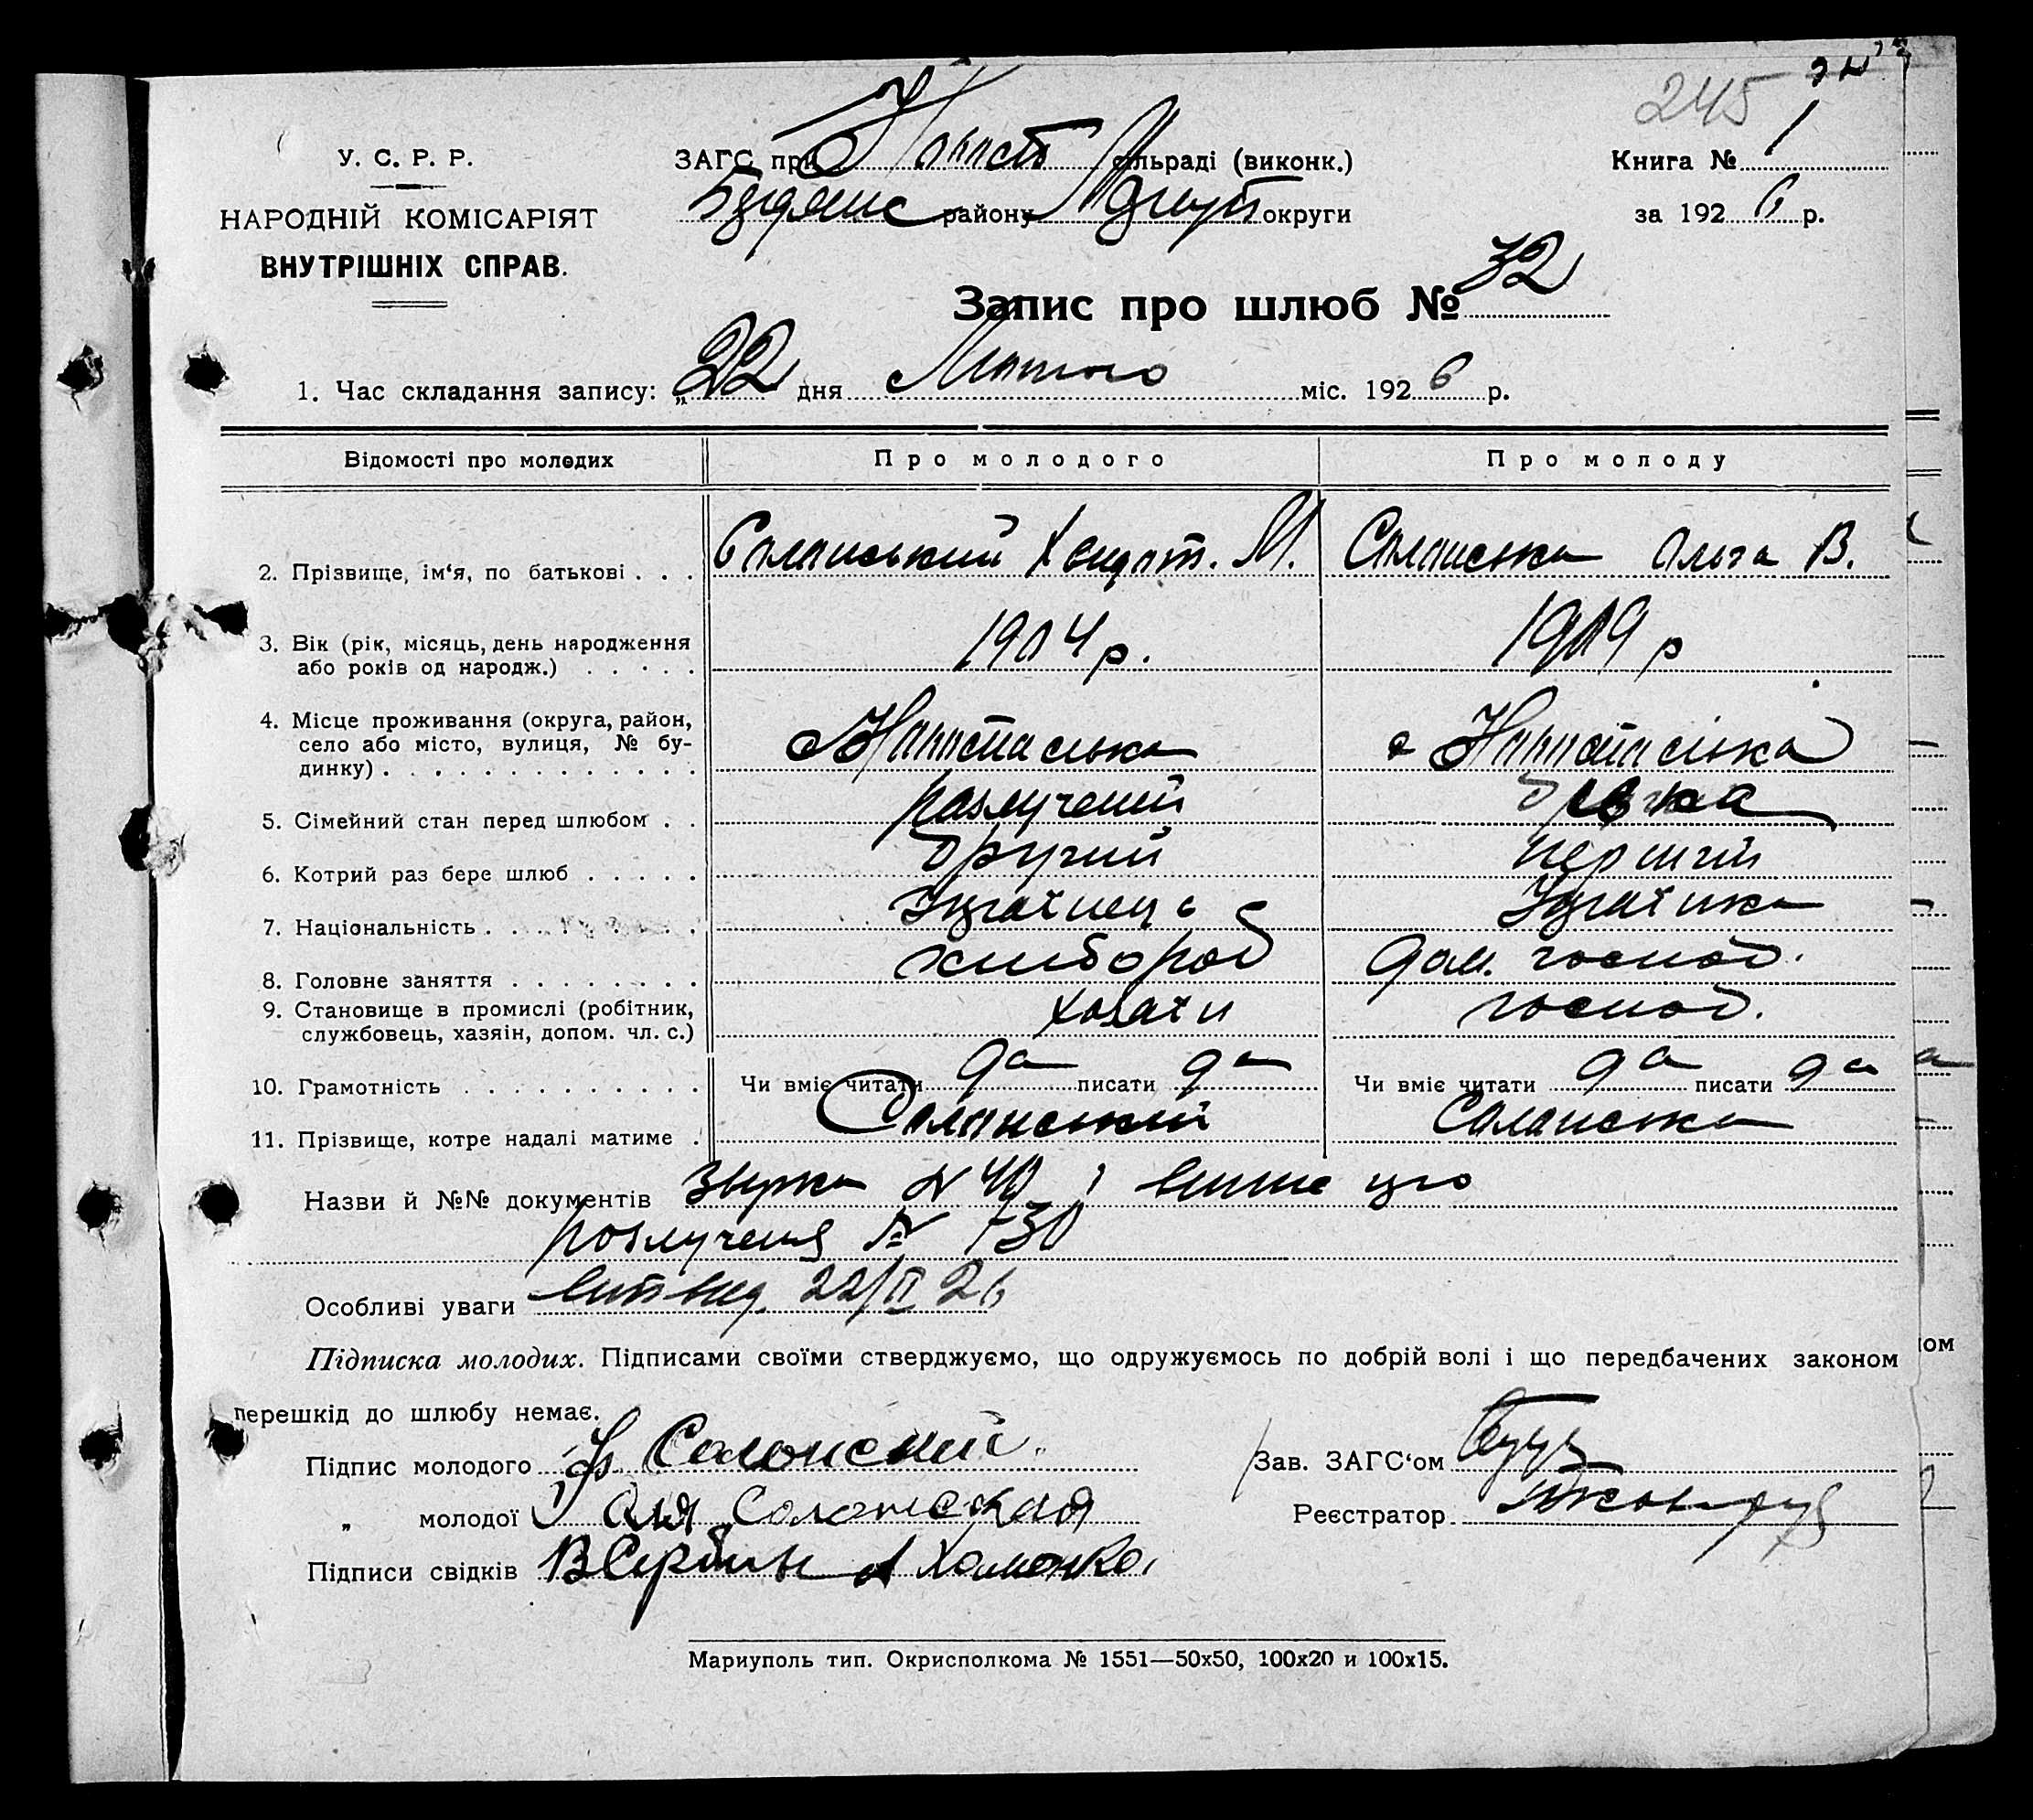 245
У. С. Р. Р.
ЗАГС при сільраді (виконк.)
Книга № 1
НАРОДНІЙ КОМІСАРІЯТ
району округи
за 1926 р.
ВНУТРІШНІХ СПРАВ.
Запис про шлюб № 32
1. Час складання запису: „22 дня Лютого міс. 1926 р.
Відомості про молодих Про молодого Про молоду
2. Прізвище, ім'я, по батькові . . . Саланський Кендрат. М. Саланська Ольга В.
3. Вік (рік, місяць, день народження
або років од народж.) . . . . . 1904 р. 1909 р
4. Місце проживання (округа, район,
село або місто, вулиця, № бу-
динку) . . . . . . . . . . . . .
5. Сімейний стан перед шлюбом . . розлучений дівка
6. Котрий раз бере шлюб . . . . . другий перший
7. Національність . . . . . . . . Українець Українка
8. Головне заняття . . . . . . . . хлибороб дом. господ.
9. Становище в промислі (робітник,
службовець, хазяін, допом. чл. с.) хозяїн господ.
10. Грамотність . . . . . . . . . . Чи вміє читати да писати да Чи вміє читати да писати да
11. Прізвище, котре надалі матиме . Саланський Саланська
Назви й №№ документів № 40 і
розлученя № 730
Особливі уваги 22/II 26
Підписка молодих. Підписами своїми стверджуємо, що одружуємось по добрій волі і що передбачених законом
перешкід до шлюбу немає.
Підпис молодого Солонский
Зав. ЗАГС'ом
„ молодої Оля Солонская
Реєстратор
Підписи свідків В Сербин А Хоменко
Мариуполь тип. Окрисполкома № 1551—50х50, 100х20 и 100х15.